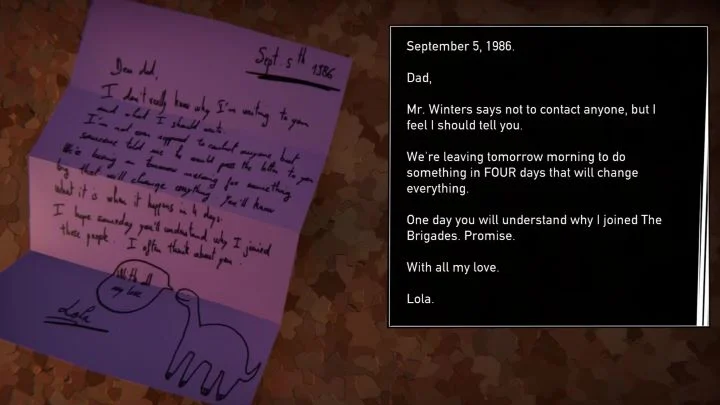 Sept. 5th 1986
Dear dad,
I don't really know why I'm writing to you
and what I should write.
I'm not even supposed to contact anyone, but
someone told me he would post the letter to you
We're leaving on tomorrow morning for something
big that will change everything. You'll know
what it is when it happens in 4 days.
I hope someday you'll understand why I joined
those people. I often think about you.
With all
my love
Lola
September 5, 1986.
Dad,
Mr. Winters says not to contact anyone, but I
feel I should tell you.
We're leaving tomorrow morning to do
something in FOUR days that will change
everything.
One day you will understand why I joined The
Brigades. Promise.
With all my love.
Lola.